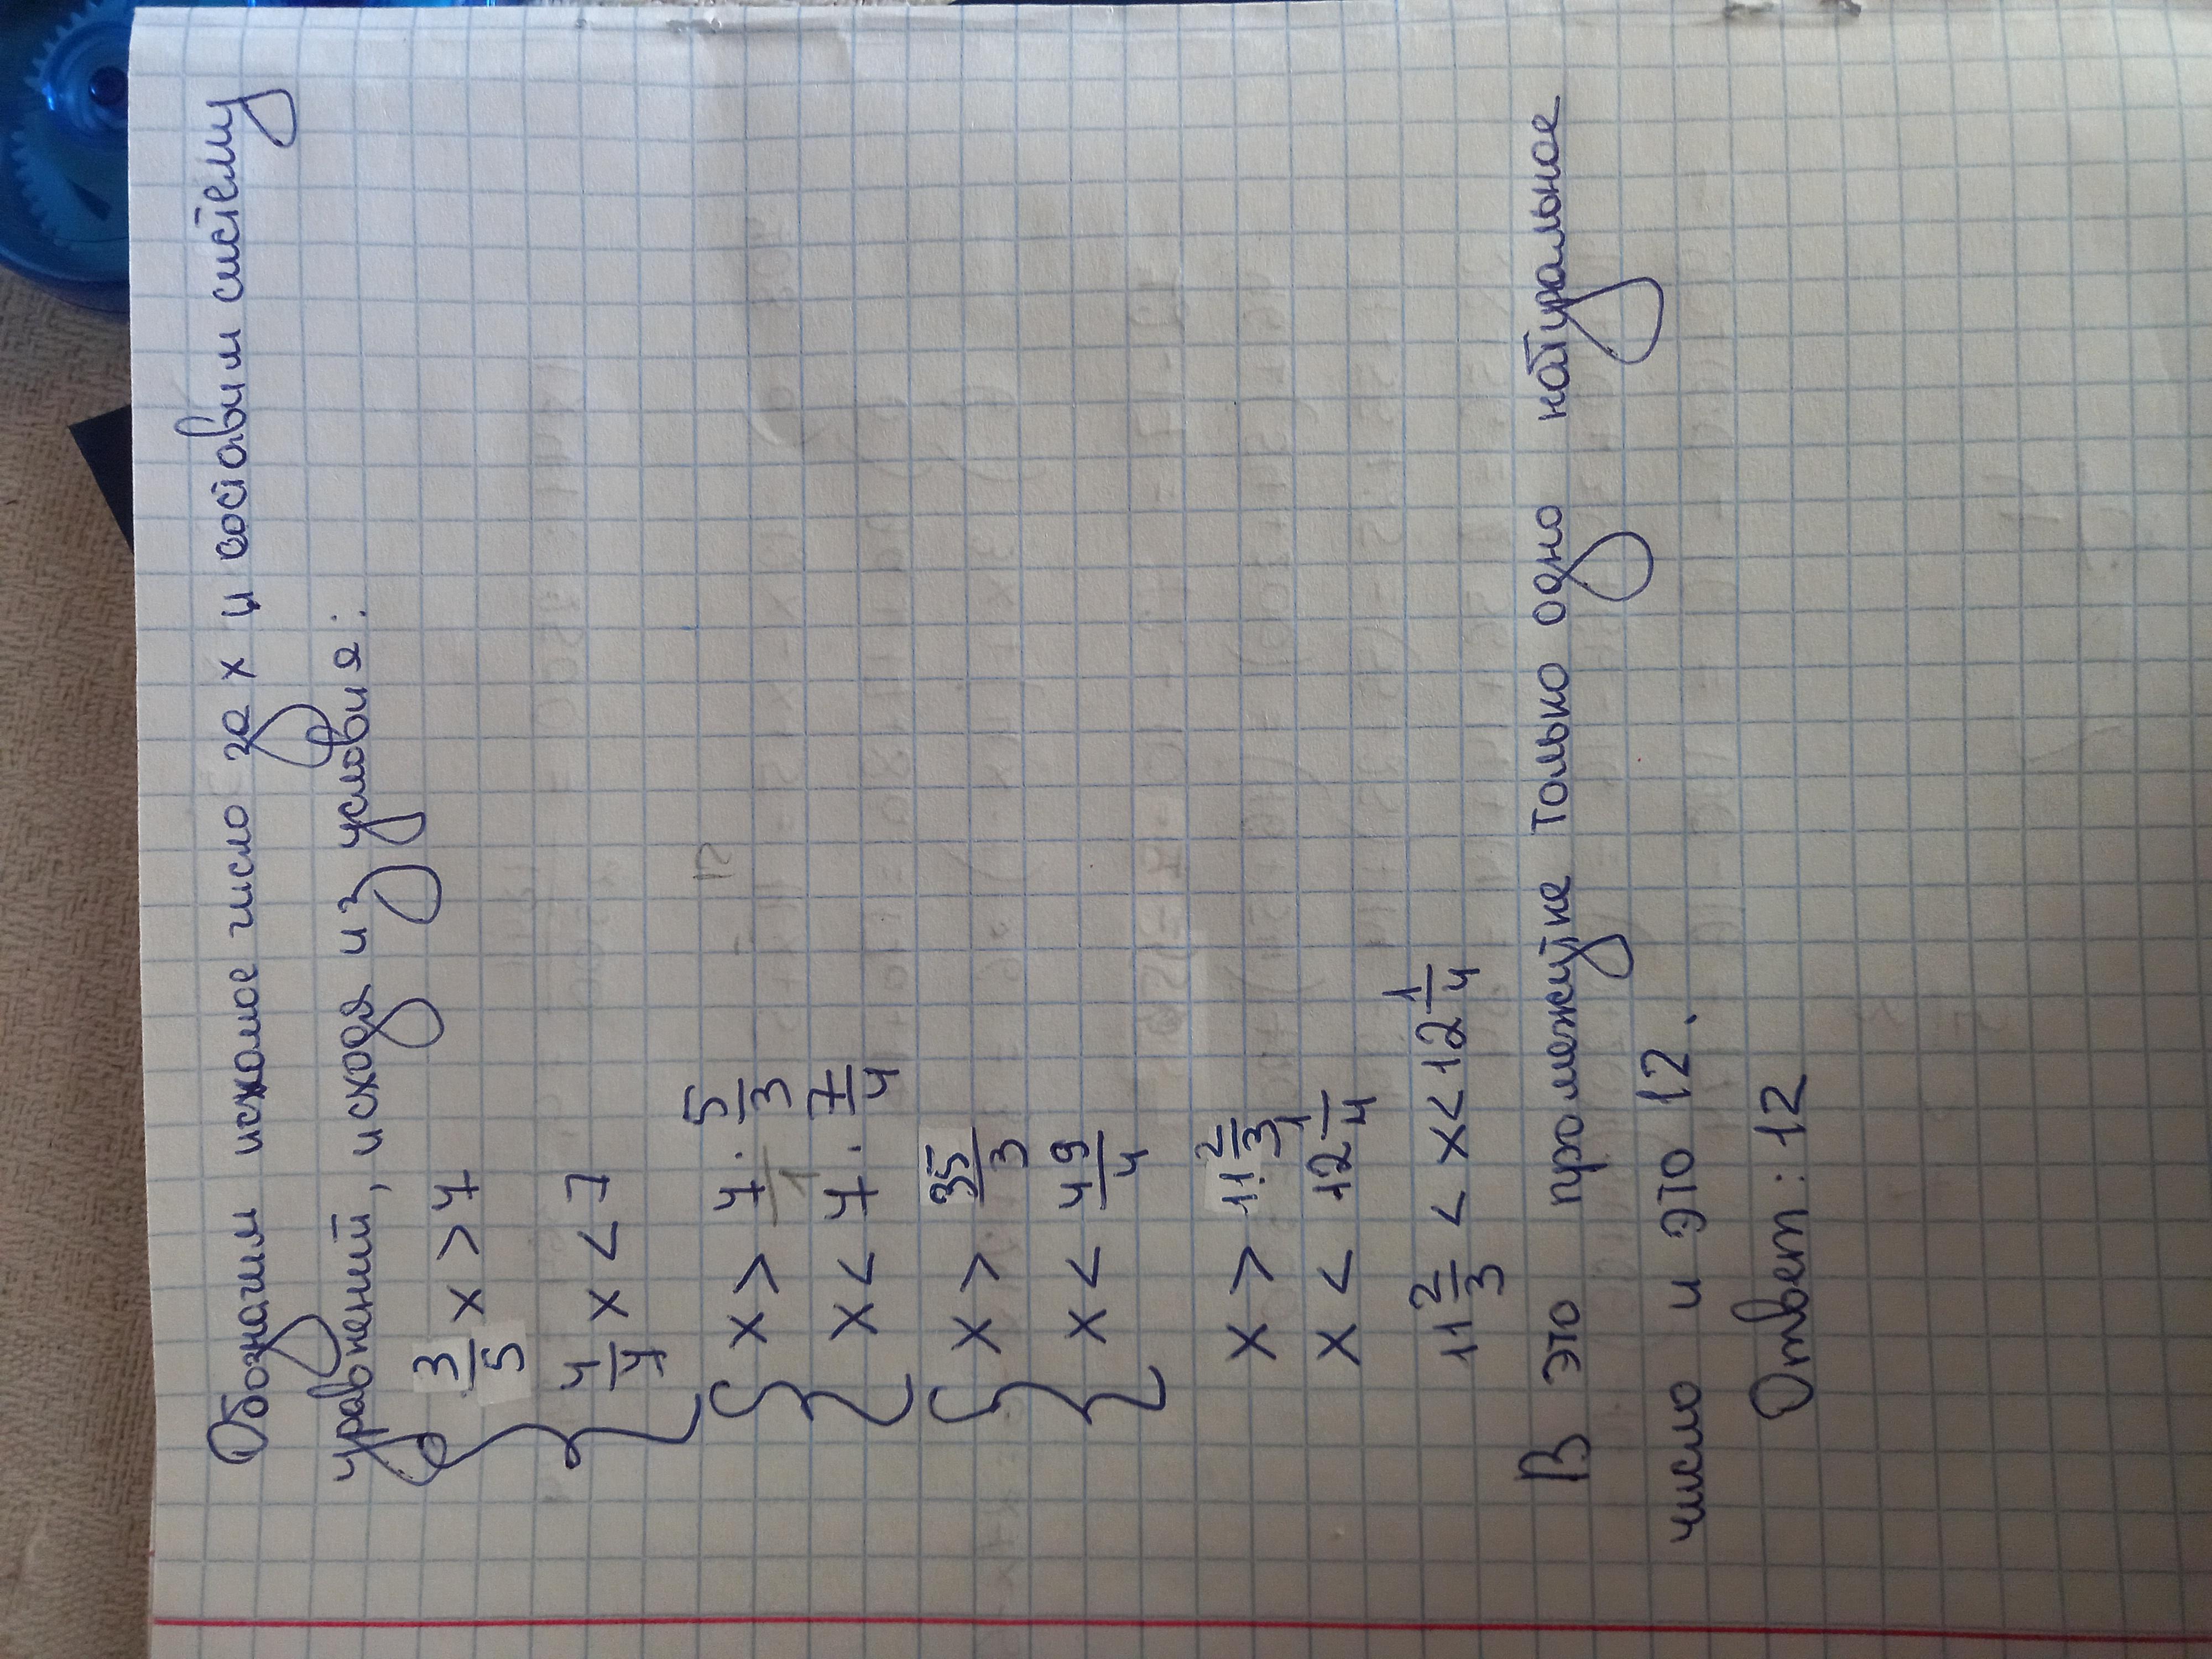 Обозначим искомое число за x и составим систему
уравнений, исходя из условия:
3/5 x > 7
4/7 x < 7
x > 7/1 · 5/3
x < 7 · 7/4
x > 35/3
x < 49/4
x > 11 2/3
x < 12 1/4
11 2/3 < x < 12 1/4
В это промежутке только одно натуральное
число и это 12.
Ответ: 12